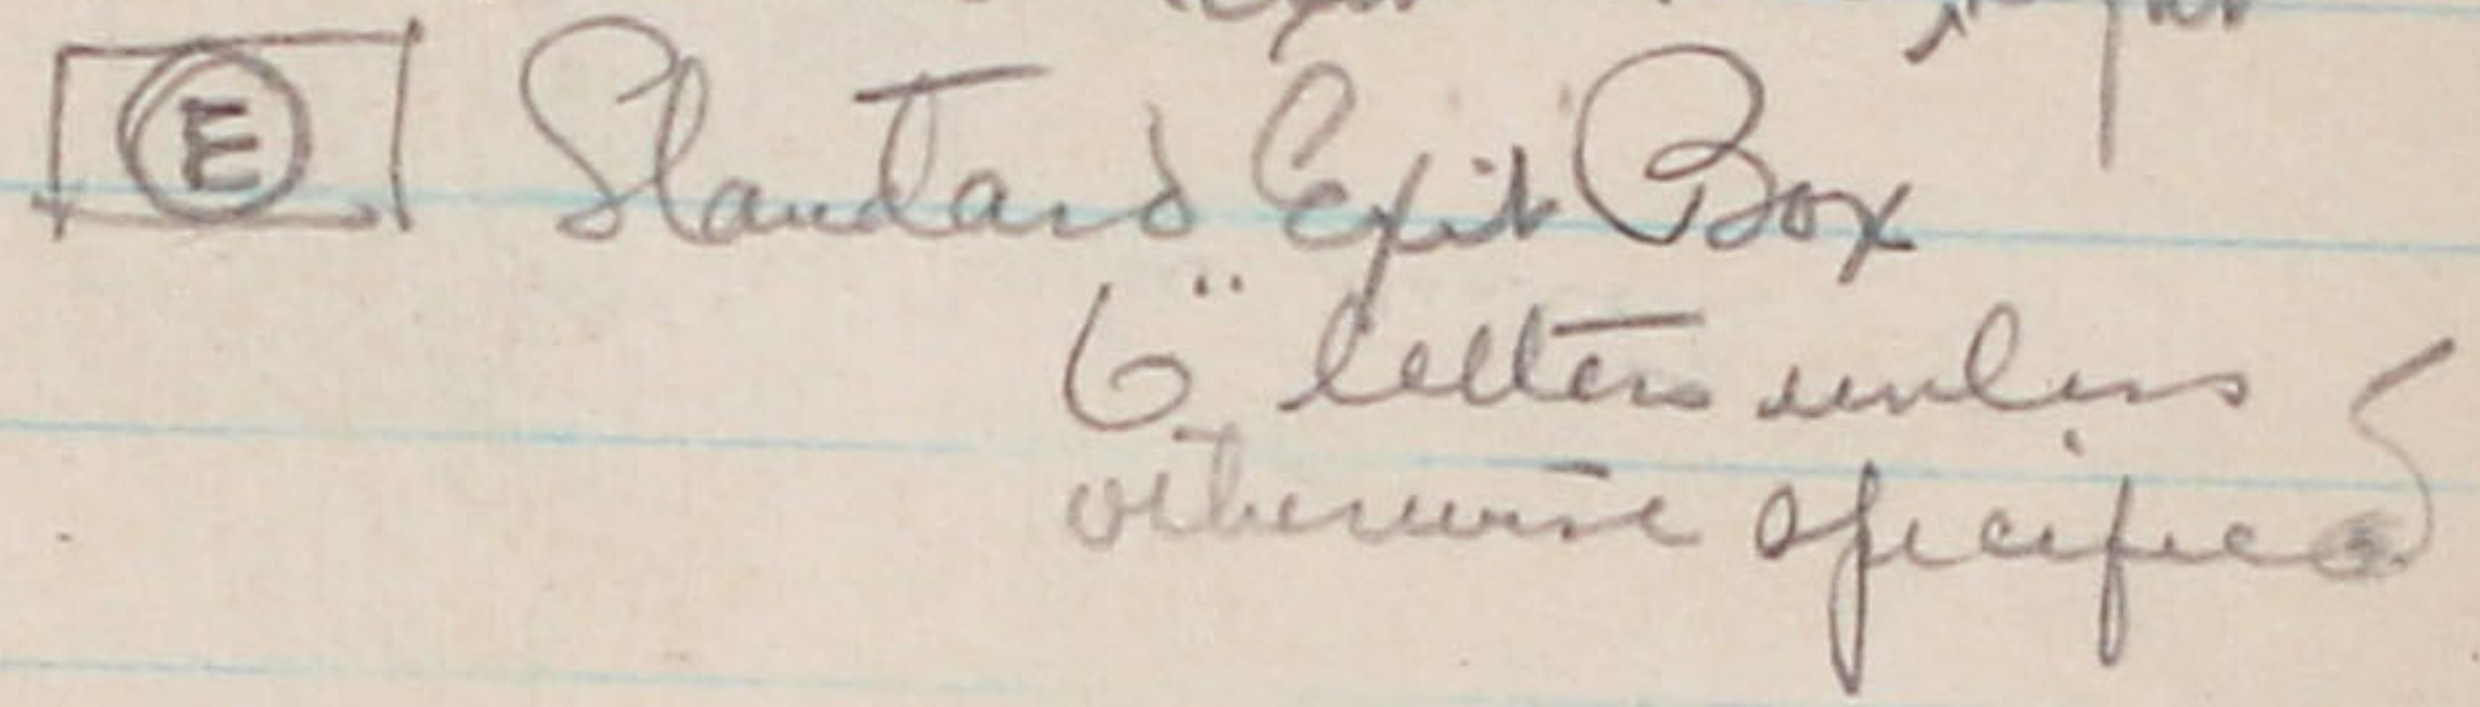 E Standard Exit Box
6" letters unless
otherwise specified